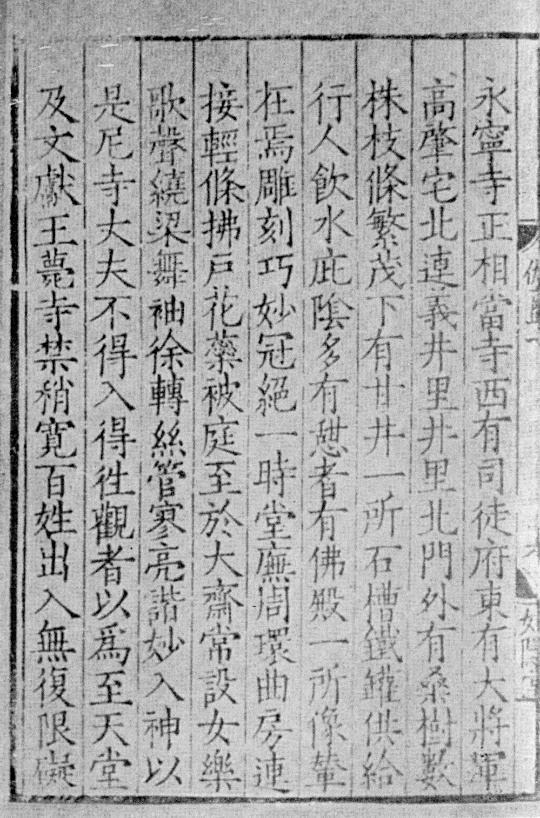 永寧寺正相當寺西有司徒府東有大將軍
高肇宅北連義井里井里北門外有桑樹數
株枝條繁茂下有甘井一所石槽鐵罐供給
行人飲水庇陰多有憇者有佛殿一所像輦
在焉雕刻巧妙冠絕一時堂廡周環曲房連
接輕條拂戶花蘂被庭至於大齋常設女樂
歌聲繞梁舞袖徐轉絲管寥亮諧妙入神以
是尼寺丈夫不得入得徃觀者以爲至天堂
及文獻王薨寺禁稍寛百姓出入無復限礙